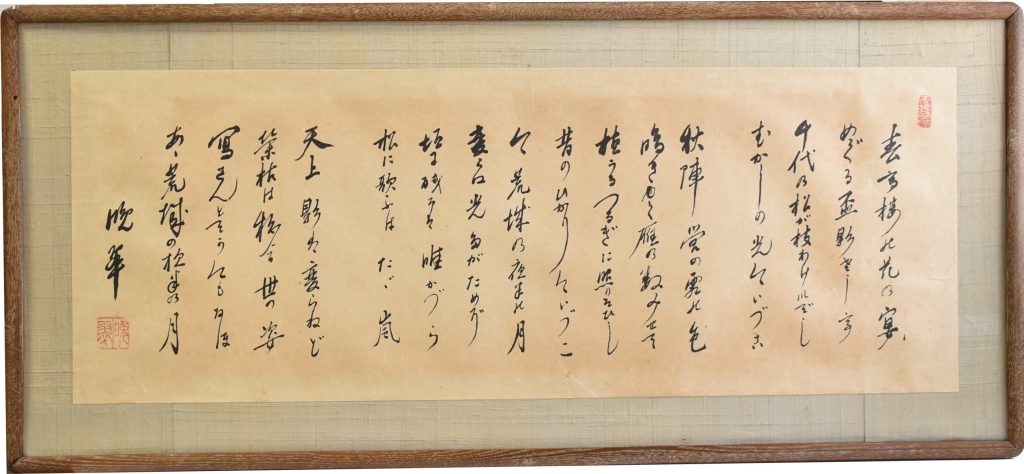 春高楼の花の宴
めぐる盃影さして
千代の松が枝わけいでし
むかしの光今いづこ
秋陣営の霜の色
鳴きゆく雁の数みせて
植うるつるぎに照りそひし
昔のひかり今いづこ
今荒城の夜半の月
変らぬ光たがためぞ
垣に残るは唯かづら
松に歌ふはたゞ嵐
天上影は変らねど
榮枯は移る世の姿
寫さんとてか今もなほ
あゝ荒城の夜半の月
晩翠